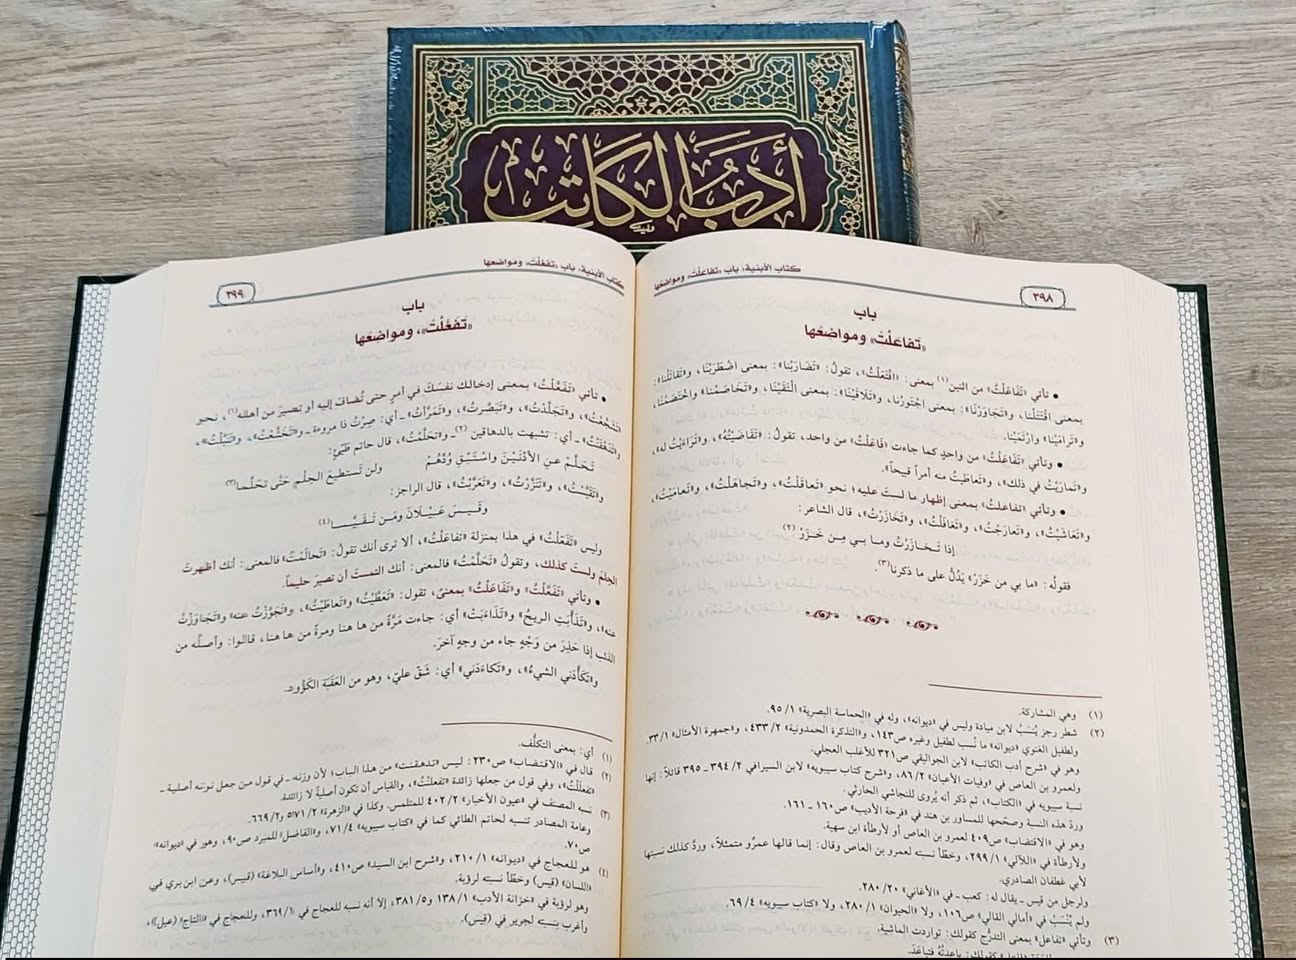 أَدَبُ الكَاتِب
٣٩٨
كتاب الأبنية: باب «تفاعلت» ومواضعها
باب
«تفاعلْت» ومواضعها
• تأتي «تَفَاعَلْتُ» من اثنين(١) بمعنى: «افْتَعَلْتُ»، تقولُ: «تَضَارَبْنا»: بمعنى اضْطَرَبْنا، و«تَقَاتَلْنا»:
بمعنى اقْتَتَلْنا، و«تَجَاوَرْنا»: بمعنى اجْتَوَرْنا، و«تَلاقَيْنا»: بمعنى الْتَقَيْنا، و«تَخَاصَمْنا» واخْتَصَمْنا،
و«تَرامَيْنا» وارْتَمَيْنا.
• وتأتي «تَفَاعَلْتُ» من واحدٍ كما جاءت «فَاعَلْتُ» من واحد، تقولُ: «تَقَاضَيْتُهُ»، و«تَرَاءَيْتُ له»،
و«تمارَيْتُ في ذلك»، و«تَعَاطَيْتُ منه أمراً قبيحاً».
• وتأتي «تفاعلتُ» بمعنى إظهار ما لستَ عليه؛ نحو «تغافَلْتُ»، و«تَجَاهَلْتُ»، و«تَعامَيْتُ»،
و«تَعَاشَيْتُ»، و«تعارَجْتُ»، و«تَخَازَرْتُ»، قال الشاعر:
إذا تَـخازَرْتُ وما بي مـن خَـزَرْ(٢)
فقولُه: «ما بي من خَزَرْ» يَدُلُّ على ما ذكرنا(٣)
(١) وهي المشاركة.
(٢) شطر رجز يُنْسَبُ لابن ميادة وليس في «ديوانه»، وله في «الحماسة البصرية» ١/ ٩٥.
ولطفيل الغنوي «ديوانه» ما نُسب لطفيل وغيره ص١٤٣، و«التذكرة الحمدونية» ٢/ ٤٣٣، و«جمهرة الأمثال» ١/ ٣٣.
وهو في «شرح أدب الكاتب» لابن الجواليقي ص٣٢١ للأغلب العجلي.
ولعمرو بن العاص في «وفيات الأعيان» ٢/ ٨٦، و«شرح كتاب سيبويه» لابن السيرافي ٢/ ٣٩٤ ـ ٣٩٥ قائلاً: إنها
نسبة سيبويه في «الكتاب»، ثم ذكر أنه يُروى للنجاشي الحارثي.
وردّ هذه النسبة وصحّحها للمساور بن هند في «فرحة الأديب» ص١٦٠ ـ ١٦١.
وهو في «الاقتضاب» ص٤٠٩ لعمرو بن العاص أو لأرطأة ابن سهية.
ولأرطأة في «اللآلي» ١/ ٢٩٩، وخطّأ نسبته لعمرو بن العاص وقال: إنما قالها عمرٌو متمثلاً، وردّ كذلك نسبتها
لأبي غطفان الصادري.
ولرجل من قيس ـ يقال له: كعب ـ في «الأغاني» ٢٠/ ٢٨٠.
ولم يُنْسَبْ في «أمالي القالي» ص١٠٦، ولا «الحيوان» ١/ ٢٨٠، ولا «كتاب سيبويه» ٤/ ٦٩.
(٣) وتأتي «تفاعل» بمعنى التدرُّج كقولك: تواردت الماشية.
كقولك: باعدتُهُ فتباعَدَ.
٣٩٩
كتاب الأبنية: باب «تفعّلت» ومواضعها
باب
«تَفَعَّلْتُ»، ومواضعها
• تأتي «تَفَعَّلْتُ» بمعنى إدخالك نفسَكَ في أمرٍ حتى تُضافَ إليه أو تصيرَ من أهله(١)، نحو
«تَشَجَّعْتُ»، و«تَجَلَّدْتُ»، و«تَبَصَّرْتُ»، و«تَمَرَّأْتُ» ـ أي: صِرْتُ ذا مروءة ـ و«تَخَشَّعْتُ»، و«تَنَبَّلْتُ»،
و«تَدَهْقَنْتُ» ـ أي: تشبهت بالدهاقين(٢) ـ و«تَحَلَّمْتُ»، قال حاتم طَيِّئ:
تَحَلَّمْ عـنِ الأدْنَيْـنَ واسْتَبْقِ وُدَّهُـمْ ولن تَستطيعَ الحِلْمَ حَتّى تَحَلَّما(٣)
و«تَقَيَّسْتُ»، و«تَنَزَّرْتُ»، و«تَعَرَّبْتُ»، قال الراجز:
وقَـيـسَ عَـيْـلانَ ومَـن تَـقَـيَّـسـا(٤)
وليس «تَفَعَّلْتُ» في هذا بمنزلة «تفاعَلْتُ»، ألا ترى أنك تقولُ: «تَحالَمْتُ» فالمعنى: أنك أظهرتَ
الحِلمَ ولستَ كذلك، وتقولُ «تَحَلَّمْتُ» فالمعنى: أنك التمستَ أن تصيرَ حليماً.
• وتأتي «تَفَعَّلْتُ» و«تَفَاعَلْتُ» بمعنىً، تقول: «تَعَطَّيْتُ» و«تَعَاطَيْتُ»، و«تَجَوَّزْتُ عنه» و«تَجَاوَزْتُ
عنه»، و«تَذَأَّبَتِ الريحُ» و«تَذَاءَبَتْ» أي: جاءت مَرَّةً من ها هنا ومرةً من ها هنا، قالوا: وأصلُه من
الذئب إذا حُذِرَ من وَجْهٍ جاء من وجهٍ آخرَ.
و«تَكَأَّدَني الشيءُ»، و«تَكاءَدَني» أي: شَقَّ عليَّ، وهو من العَقَبَة الكَؤُودِ.
(١) أي: بمعنى التكلُّف.
(٢) قال في «الاقتضاب» ص٢٣٠: ليس «تدهقنت» من هذا الباب؛ لأن وزنه ـ في قول من جعل نونه أصلية ـ
«تفعللْتُ»، وفي قول من جعلها زائدة «تفعلنْتُ»، والقياس أن تكون أصلية لا زائدة.
(٣) نسبه المصنف في «عيون الأخبار» ٢/ ٤٠٢ للمتلمس، وكذا في «الزهرة» ٢/ ٥٧١ و٢/ ٦٦٩.
وعامة المصادر تنسبه لحاتم الطائي كما في «كتاب سيبويه» ٤/ ٧١، و«الفاضل» للمبرد ص٩٠، وهور في «ديوانه»
ص٧٠.
(٤) هو للعجاج في «ديوانه» ١/ ٢١٠، و«شرح ابن السيد» ص٤١٠، و«أساس البلاغة» (قيس)، وعن ابن بري في
«اللسان» (قيس) وخطّأ نسبته لرؤبة.
وهو لرؤبة في «خزانة الأدب» ١/ ١٣٨ و٥/ ٣٨١، إلا أنه نسبه للعجاج في ١/ ٣٦٩، وللعجاج في «التاج» (عيل)،
وأغرب بنسبته لجرير في (قيس).